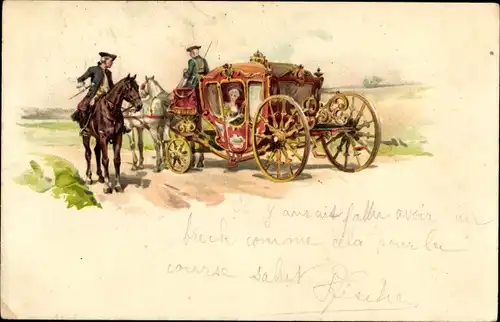 Il y aurait fallu avoir un
break comme cela pour la
course salut